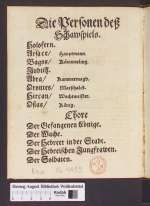 Die Personen deß
Schawspiels.
Holofern.
Arsace / Hauptmann.
Bagoa / Kämmerling.
Judith.
Abra / Kammermagd.
Orontes / Marschalck.
Hircan / Wachtmeister.
Osias / König.
Chore
Der Gefangenen Könige.
Der Wache.
Der Hebreer in der Stadt.
Der Hebreischen Jungfrawen.
Der Soldaten.
Herzog August Bibliothek Wolfenbüttel